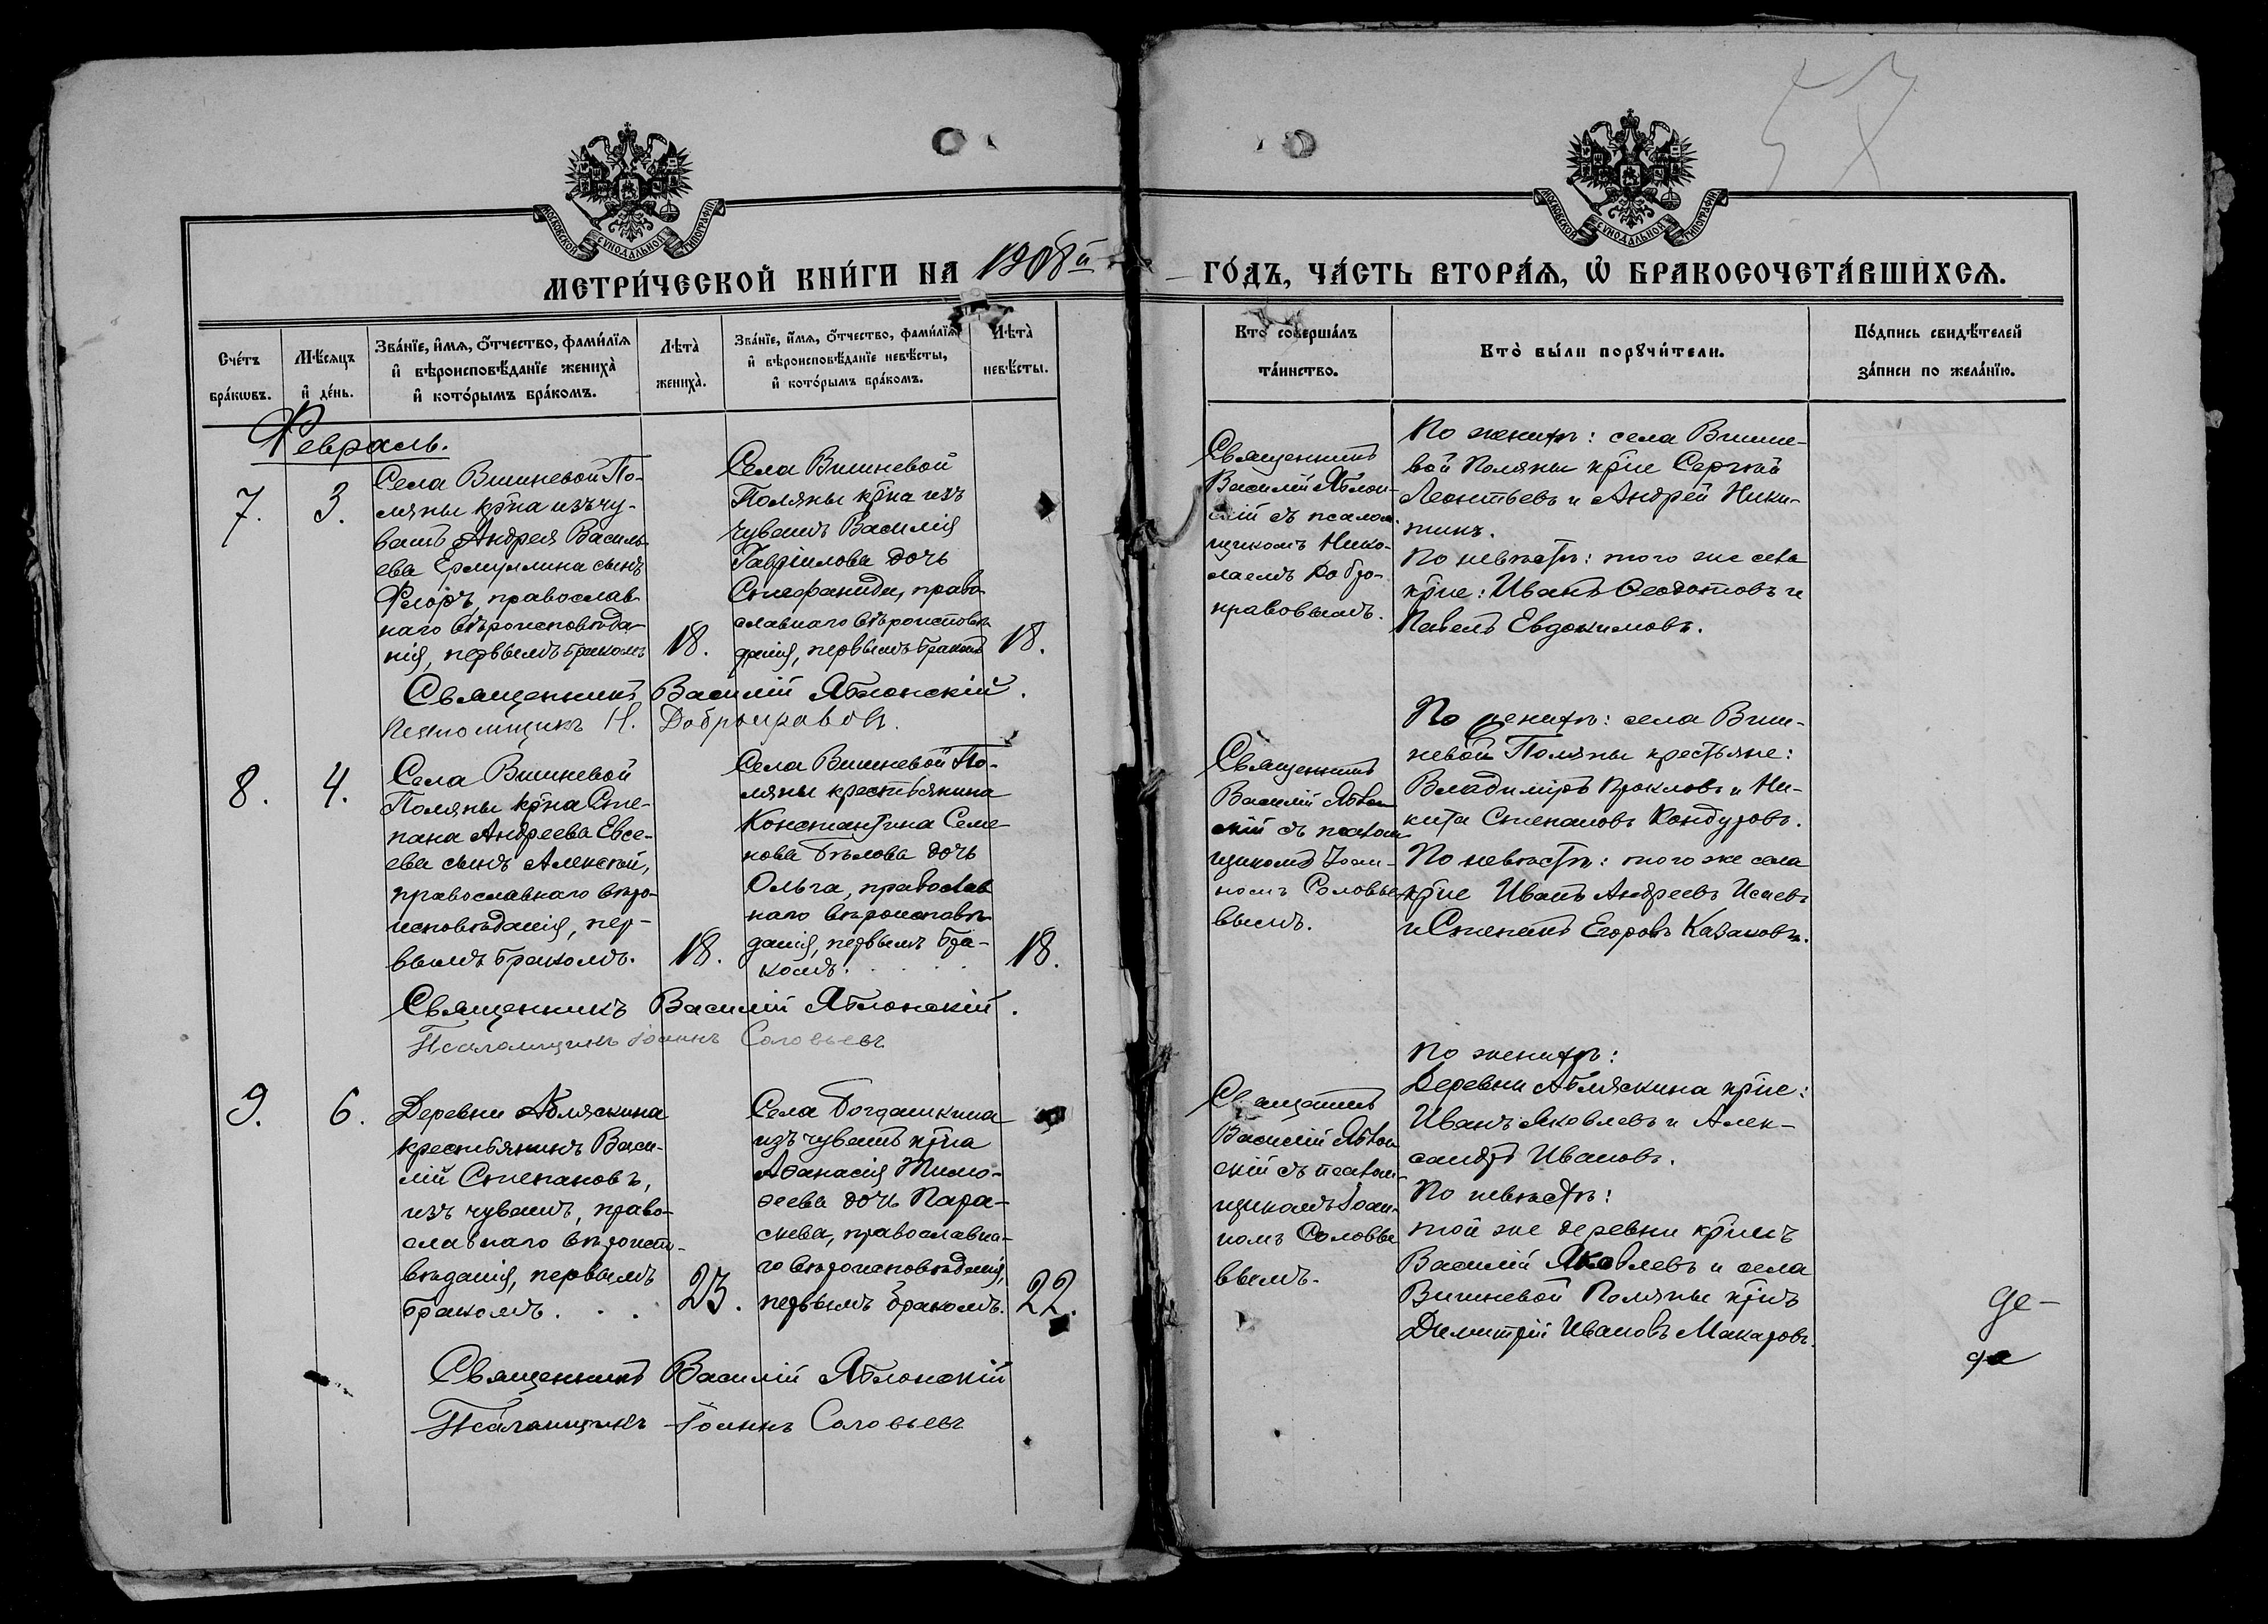 57
МОСКОВСКОЙ СѴНОДАЛЬНОЙ ТИПОГРАФІИ
МОСКОВСКОЙ СѴНОДАЛЬНОЙ ТИПОГРАФІИ
МЕТРИ́ЧЕСКОЙ КНИ́ГИ НА 1908й
ГО́ДЪ, ЧА́СТЬ ВТОРА́Ѧ, Ѽ БРАКОСОЧЕТА́ВШИХСѦ.
Сче́тъ
бра́кѡвъ.
Мѣ́сяцъ
и҆ де́нь.
Зва́нїе, и҆́мѧ, ѻ҆́тчество, фами́лїѧ
и҆ вѣроисповѣ́данїе жениха̀
и҆ кото́рымъ бра́комъ.
Лѣта̀
жениха̀.
Зва́нїе, и҆́мѧ, ѻ҆́тчество, фами́лїѧ
и҆ вѣроисповѣ́данїе невѣ́сты,
и҆ кото́рымъ бра́комъ.
Лѣта̀
невѣ́сты.
Кто соверша́лъ
та́инство.
Кто̀ бы́ли порꙋчи́тели.
По́дпись свидѣ́телей
за́писи по жела́нїю.
Февраль.
7.
3.
Села Вишневой По-
ляны кр̃на изъ чу-
вашъ Андрея Василь-
ева Ермулина сынъ
Флоръ, православ-
наго вѣроисповѣда-
нія, первымъ бракомъ
18.
Села Вишневой
Поляны кр̃на изъ
чувашъ Василія
Гавріилова дочь
Стефанида, право-
славнаго вѣроисповѣ-
данія, первымъ бракомъ
18.
Священникъ
Василій Яблон-
скій съ псалом-
щикомъ Нико-
лаемъ Добро-
нравовымъ.
По женихѣ: села Вишне-
вой Поляны кр̃не Сергѣй
Леонтьевъ и Андрей Ники-
тинъ.
По невѣстѣ: того же села
кр̃не: Иванъ Ѳеодотовъ и
Павелъ Евдокимовъ.
Священникъ Василій Яблонскій.
Псаломщикъ Н. Добронравовъ.
8.
4.
Села Вишневой
Поляны кр̃на Сте-
пана Андреева Евсе-
ева сынъ Алексѣй,
православнаго вѣро-
исповѣданія, пер-
вымъ бракомъ.
18.
Села Вишневой По-
ляны крестьянина
Константина Семе-
нова Бѣлова дочь
Ольга, православ
наго вѣроисповѣ-
данія, первымъ бра-
комъ.
18.
Священникъ
Василій Яблон
скій съ псалом
щикомъ Іоан-
номъ Соловье-
вымъ.
По женихѣ: села Виш-
невой Поляны крестьяне:
Владиміръ Прокловъ и Ни-
кита Степановъ Кондуровъ.
По невѣстѣ: того же села
кр̃не Иванъ Андреевъ Исаевъ
и Степанъ Егоровъ Казаковъ.
Священникъ Василій Яблонскій.
Псаломщикъ Іоаннъ Соловьевъ
9.
6.
Деревни Абляскина
крестьянинъ Васи-
лій Степановъ,
изъ чувашъ, право-
славнаго вѣроиспо-
вѣданія, первымъ
бракомъ.
23.
Села Богдашкина
изъ чувашъ кр̃на
Аѳанасія Тимо-
ѳеева дочь Пара-
скева, православна-
го вѣроисповѣданія,
первымъ бракомъ.
22.
Священникъ
Василій Яблон
скій съ псалом-
щикомъ Іоан-
номъ Соловье
вымъ.
По женихѣ:
Деревни Абляскина кр̃не:
Иванъ Яковлевъ и Алек-
сандръ Ивановъ.
По невѣстѣ:
той же деревни кр̃нинъ
Василій Яковлевъ и села
Вишневой Поляны кр̃нъ
Димитрій Ивановъ Макаровъ.
Священникъ Василій Яблонскій
Псаломщикъ Іоаннъ Соловьевъ